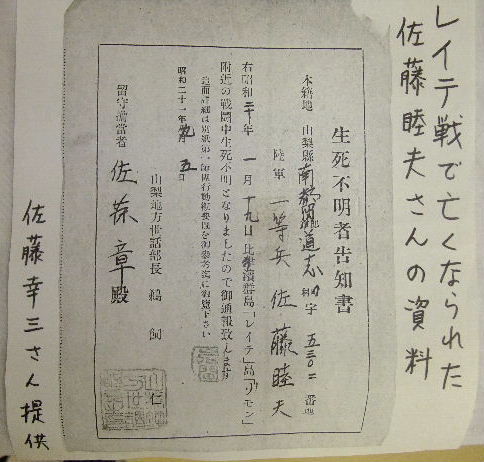 レイテ戦で亡くなられた
佐藤睦夫さんの資料
生死不明者告知書
本籍地 山梨縣南都留郡道志村字 五三〇二番地
陸軍 一等兵 佐藤睦夫
右昭和二十年 一月 十九日比律濱群島「レイテ」島「リモン」
附近の戰闘中生死不明となりましたので御通報致します
昭和二十一年 九月 五日
山梨地方世話部長 鵜飼
留守擔當者 佐藤章殿
佐藤幸三さん提供